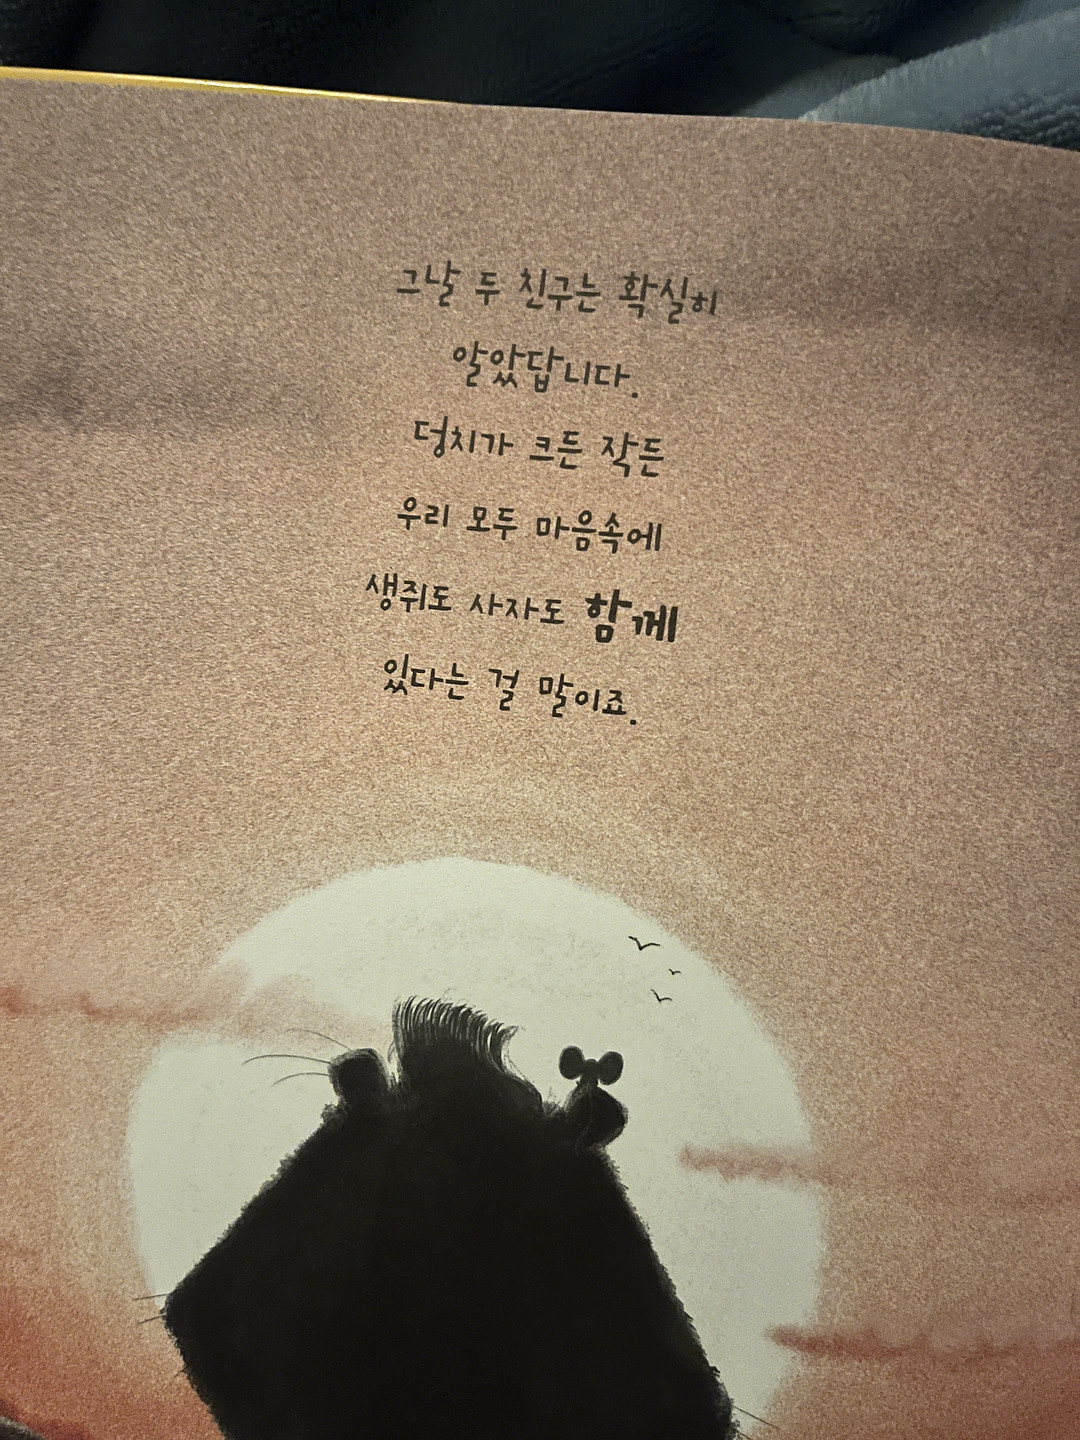 그날 두 친구는 확실히
알았답니다.
덩치가 크든 작든
우리 모두 마음속에
생쥐도 사자도 함께
있다는 걸 말이죠.